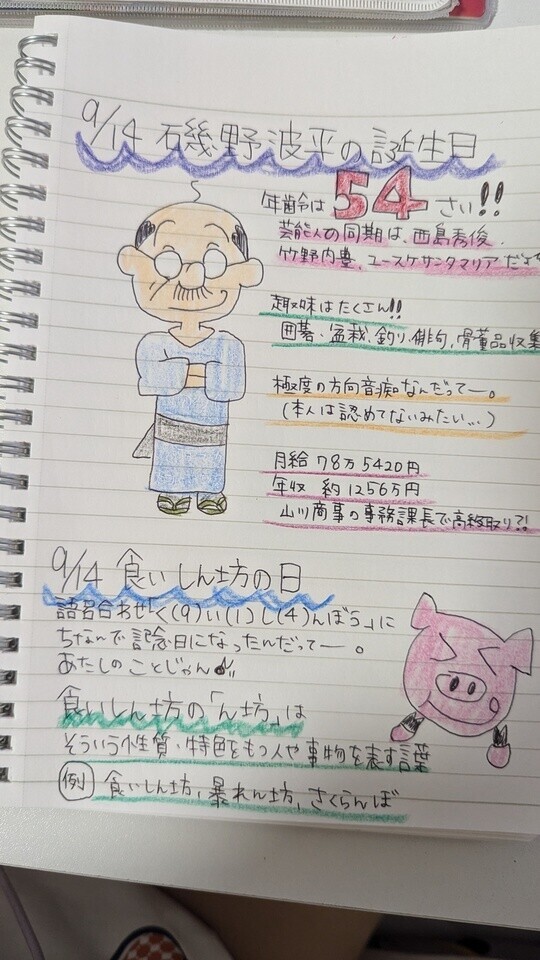 9/14 磯野波平の誕生日
年齢は54さい!!
芸能人の同期は、西島秀俊、
竹野内豊、ユースケサンタマリアだよ
趣味はたくさん!!
囲碁・盆栽、釣り、俳句、骨董品収集
極度の方向音痴なんだってー。
(本人は認めてないみたい…)
月給 78万5420円
年収 約1256万円
山川商事の事務課長で高給取り?!
9/14 食いしん坊の日
語呂合わせ「く(9)い(1)し(4)んぼう」に
ちなんで記念日になったんだってー。
あたしのことじゃん!!
食いしん坊の「ん坊」は
そういう性質・特色をもつ人や事物を表す言葉
例 食いしん坊、暴れん坊、さくらんぼ